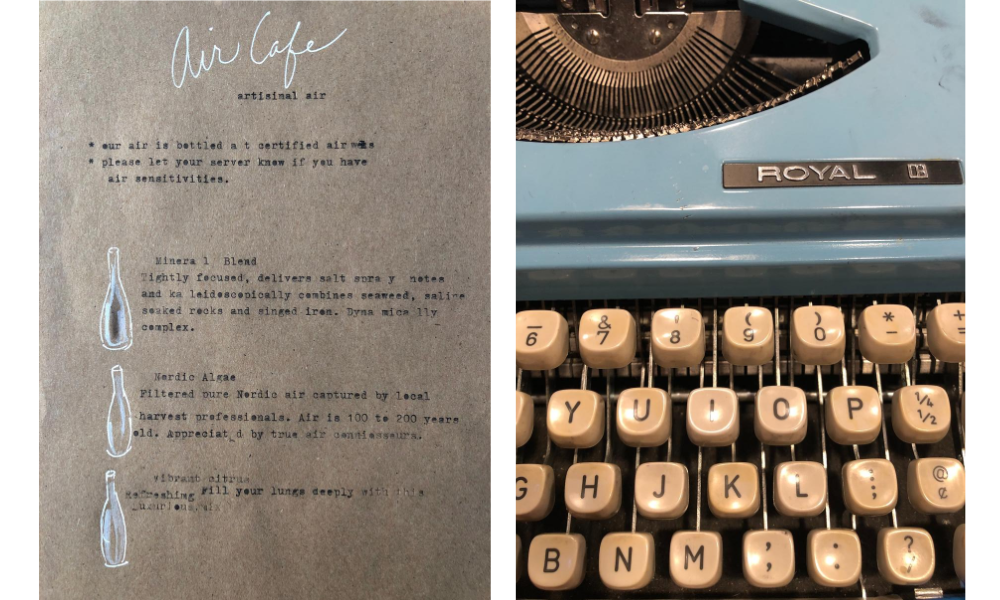 Air Cafe
artisinal air
* our air is bottled a t certified air
* please let your server know if you have
air sensitivities.
Minera l Blend
Tightly focused, delivers salt spra y notes
and ka leidoscopically combines seaweed, saline
soaked rocks and singed iron. Dyna mica lly
complex.
Nordic Algae
Filtered pure Nordic air captured by local
harvest professionals. Air is 100 to 200 years
old. Appreciat d by true air
vibrant citrus
Refreshing Fill your lungs deeply with this
luxurious air
ROYAL
_ 6 & 7 ' 8 ( 9 ) 0 * - + =
Y U I O P 1/4 1/2
G H J K L : ; @ ¢
B N M , . ?